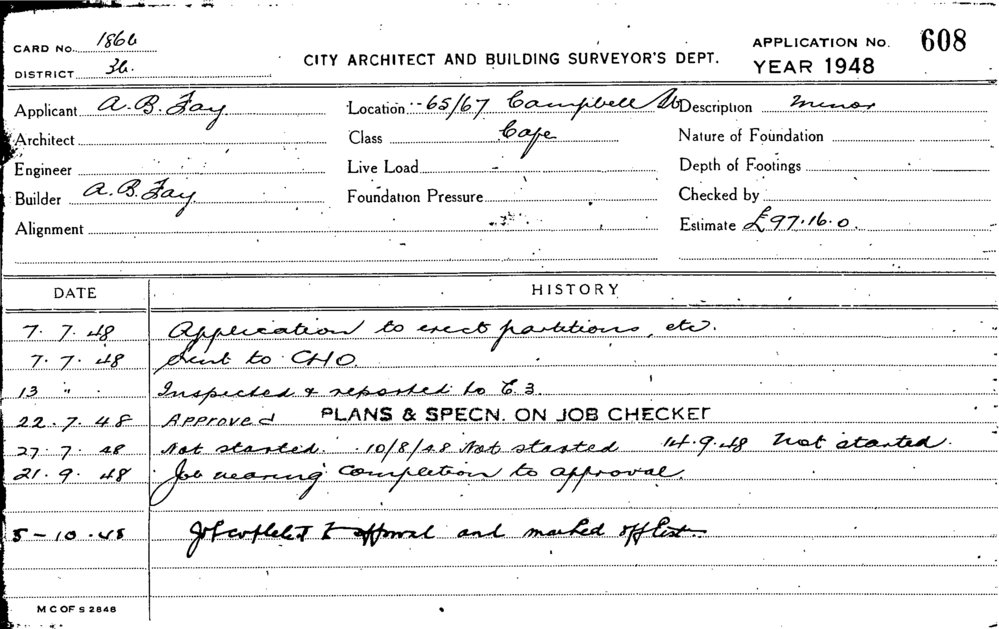 CARD No. 1866
DISTRICT 36.
CITY ARCHITECT AND BUILDING SURVEYOR'S DEPT.
APPLICATION No. 608
YEAR 1948
Applicant A. B. Fay Location 65/67 Campbell St Description Minor
Architect Class Cafe Nature of Foundation
Engineer Live Load Depth of Footings
Builder A. B. Fay Foundation Pressure Checked by
Alignment Estimate £97.16.0.
DATE HISTORY
7.7.48 Application to erect partitions, etc.
7.7.48 Sent to CHO.
13 " Inspected & reported to E.3.
22.7.48 Approved PLANS & SPECN. ON JOB CHECKET
27.7.48 Not started. 10/8/48 Not started 14.9.48 Not started.
21.9.48 Job nearing completion to approval.
5-10.48 Job complet to approval and marked off list.
M C OF S 2848